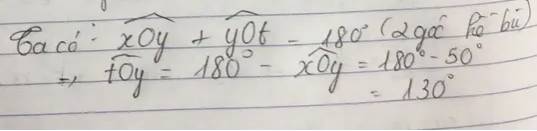 Ta có: xOy + yOt = 180° (2 góc kề bù)
=> tOy = 180° - xOy = 180° - 50°
= 130°